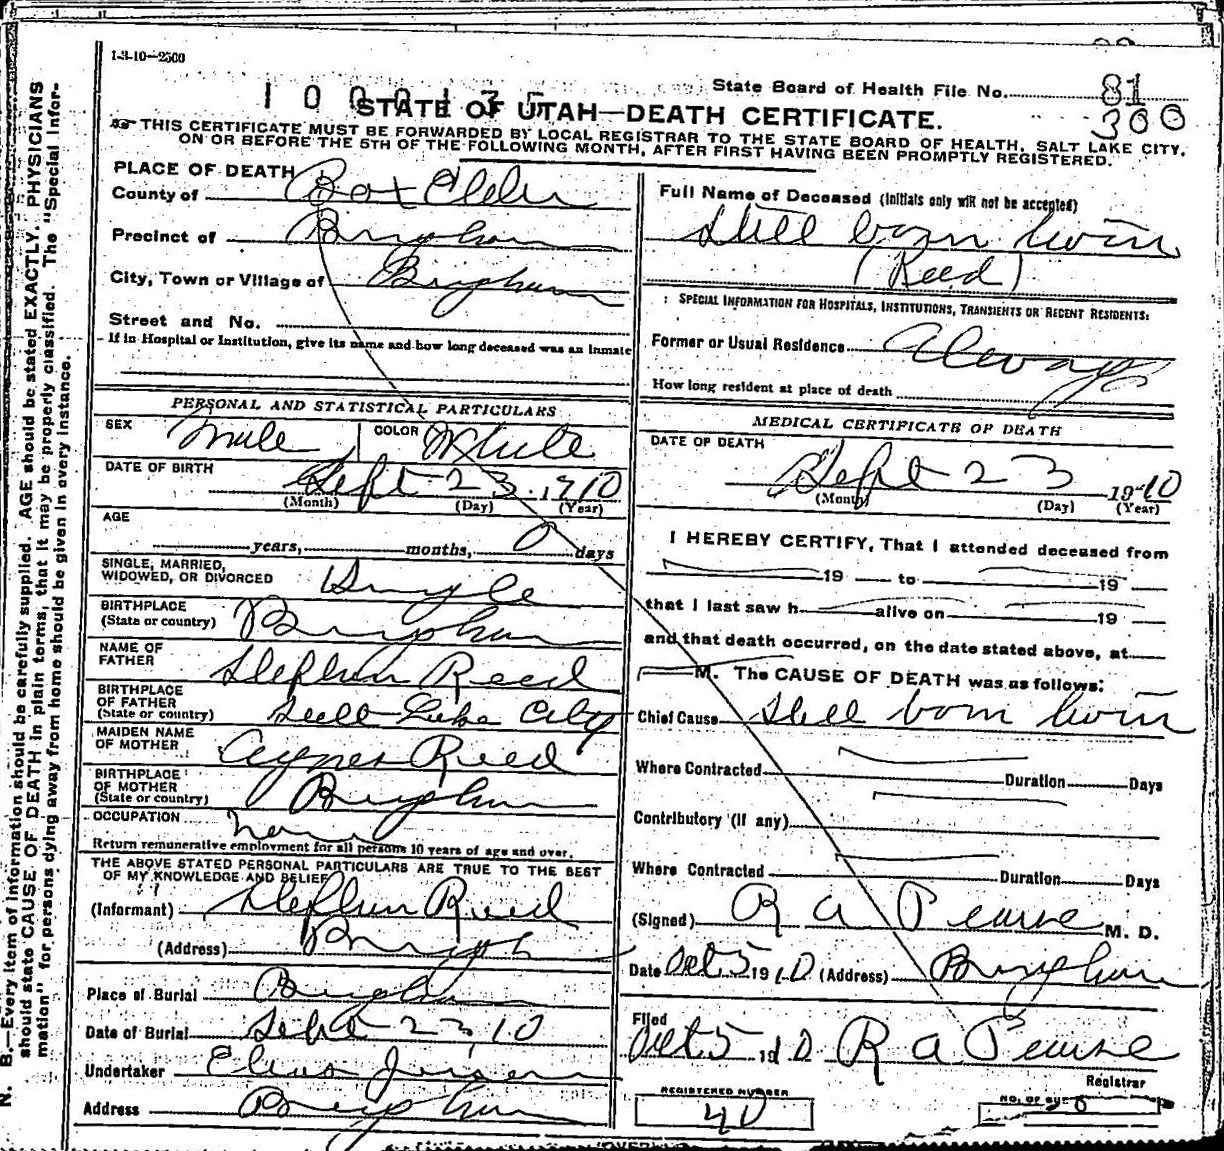 1-3-10—2500
State Board of Health File No. 81
300
1000135
STATE OF UTAH—DEATH CERTIFICATE.
THIS CERTIFICATE MUST BE FORWARDED BY LOCAL REGISTRAR TO THE STATE BOARD OF HEALTH, SALT LAKE CITY,
ON OR BEFORE THE 5TH OF THE FOLLOWING MONTH, AFTER FIRST HAVING BEEN PROMPTLY REGISTERED.
PLACE OF DEATH
County of Box Elder
Precinct of Brigham
City, Town or Village of Brigham
Street and No.
If in Hospital or Institution, give its name and how long deceased was an inmate
PERSONAL AND STATISTICAL PARTICULARS
SEX Male COLOR White
DATE OF BIRTH
Sept 23 1910
(Month) (Day) (Year)
AGE
years, months, 0 days
SINGLE, MARRIED,
WIDOWED, OR DIVORCED Single
BIRTHPLACE
(State or country) Brigham
NAME OF
FATHER Stephen Reed
BIRTHPLACE
OF FATHER
(State or country) Salt Lake City
MAIDEN NAME
OF MOTHER Agnes Reed
BIRTHPLACE
OF MOTHER
(State or country) Brigham
OCCUPATION None
Return remunerative employment for all persons 10 years of age and over.
THE ABOVE STATED PERSONAL PARTICULARS ARE TRUE TO THE BEST
OF MY KNOWLEDGE AND BELIEF
(Informant) Stephen Reed
(Address) Brigh
Place of Burial Brigham
Date of Burial Sept 23, 10
Undertaker Elias Jensen
Address Brigham
Full Name of Deceased (initials only will not be accepted)
Still born twin
(Reed)
SPECIAL INFORMATION FOR HOSPITALS, INSTITUTIONS, TRANSIENTS OR RECENT RESIDENTS:
Former or Usual Residence Always
How long resident at place of death
MEDICAL CERTIFICATE OF DEATH
DATE OF DEATH
Sept 23 1910
(Month) (Day) (Year)
I HEREBY CERTIFY, That I attended deceased from
19 to 19
that I last saw h alive on 19
and that death occurred, on the date stated above, at
M. The CAUSE OF DEATH was as follows:
Chief Cause Still born twin
Where Contracted Duration Days
Contributory (if any)
Where Contracted Duration Days
(Signed) R A Pearse M. D.
Date Oct 5 1910 (Address) Brigham
Filed
Oct 5 1910 R A Pearse
Registrar
REGISTERED NUMBER
40
N. B.—Every item of information should be carefully supplied. AGE should be stated EXACTLY. PHYSICIANS
should state CAUSE OF DEATH in plain terms, that it may be properly classified. The "Special Infor-
mation" for persons dying away from home should be given in every instance.